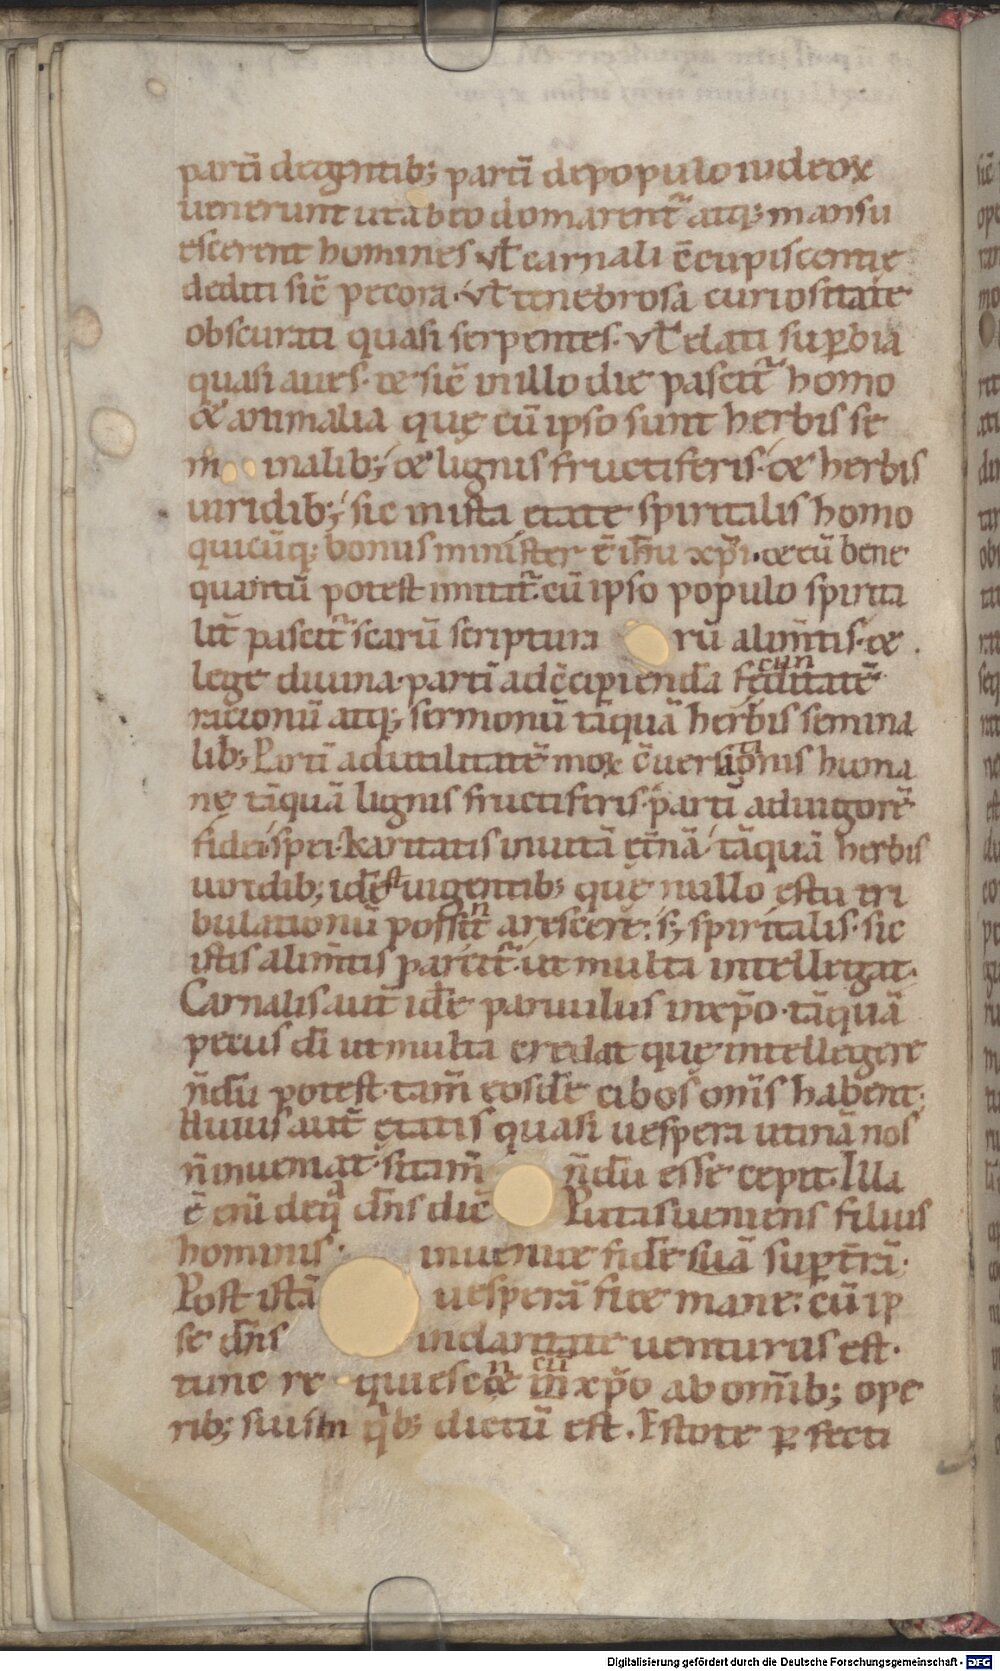 partī degentib; partī depopulo iudeoꝝ
uenerunt ut abeo domarent᷑ atq; mansu
escerent homines vł carnali c̄cupiscentię
dediti sic̄ pecora. vł tenebrosa curiositate
obscurati quasi serpentes. vł elati suꝑbia
quasi aues. & sic̄ in illo die pascit᷑ homo
& animalia quę cū ipso sunt herbis se
m inalib; & lignis fructiferis. & herbis
uiridib; sic in ista etate spiritalis homo
quicūq; bonus minister ē ih̄u xp̄i. & cū bene
quantū potest imitat᷑. cū ipso populo spirita
lit̄ pascit᷑ scarū scriptura rū alim̄tis. &
lege diuina. partī adc̄cipienda fecunditatē
racionū atq; sermonū tāquā herbis semina
lib; Partī adutilitatē moꝝ c̄uersationis huma
nę tāquā lignis fructiferis. partī aduigorē
fidei. spei. karitatis inuitā et̄nā. tāquā herbis
uiridib; idē uigentib; quę nullo estu tri
bulationū possint arescere. s; spiritalis. sic
istis alim̄tis pascit᷑. ut multa intellegat.
Carnalis aut̄ idē paruulus inxp̄o. tāquā
pecus di ut multa credat quę intellegere
n̄dū potest. tam̄ eosdē cibos om̄s habent.
Huius aut̄ ętatis quasi uespera utinā nos
n̄ inueniat. si tam̄ n̄dū esse cepit. Illa
ē enī de qua dn̄s dic̄ Putas ueniens filius
hominis. inueni& fidē suā suꝑ t̄rā.
Post istā uesperā fi& mane. cū ip
se dn̄s inclaritate uenturus est.
tunc re quiescent cū xp̄o ab omīb; ope
rib; suis in qͥb; dictū est. Estote ꝑfecti
Digitalisierung gefördert durch die Deutsche Forschungsgemeinschaft - DFG